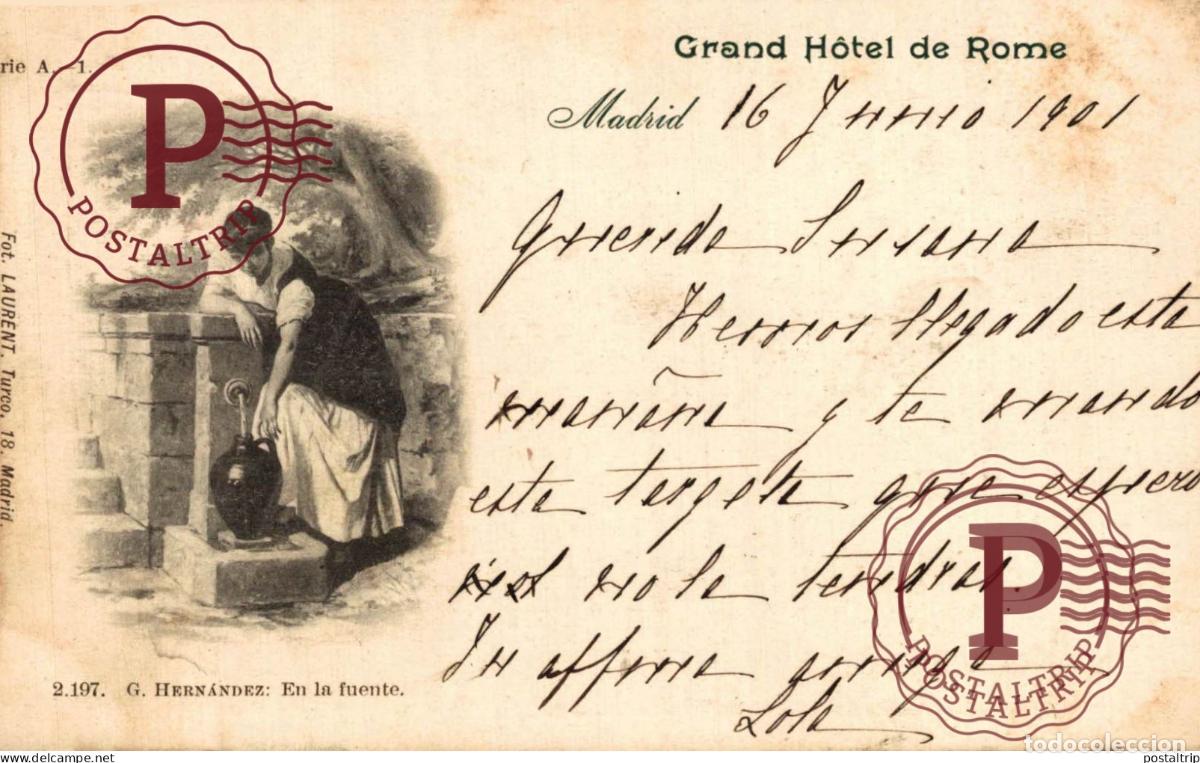 rie A. -1.
Grand Hôtel de Rome
Madrid 16 Junio 1901
Querida Susana
Hemos llegado esta
mañana y te mando
esta targeta que espero
no la tendras.
Tu affma amiga
Lola
Fot. LAURENT. Turco, 18. Madrid
2.197. G. HERNÁNDEZ: En la fuente.
P
POSTALTRIP
P
POSTALTRIP
todocoleccion
www.todocoleccion.net
postaltrip